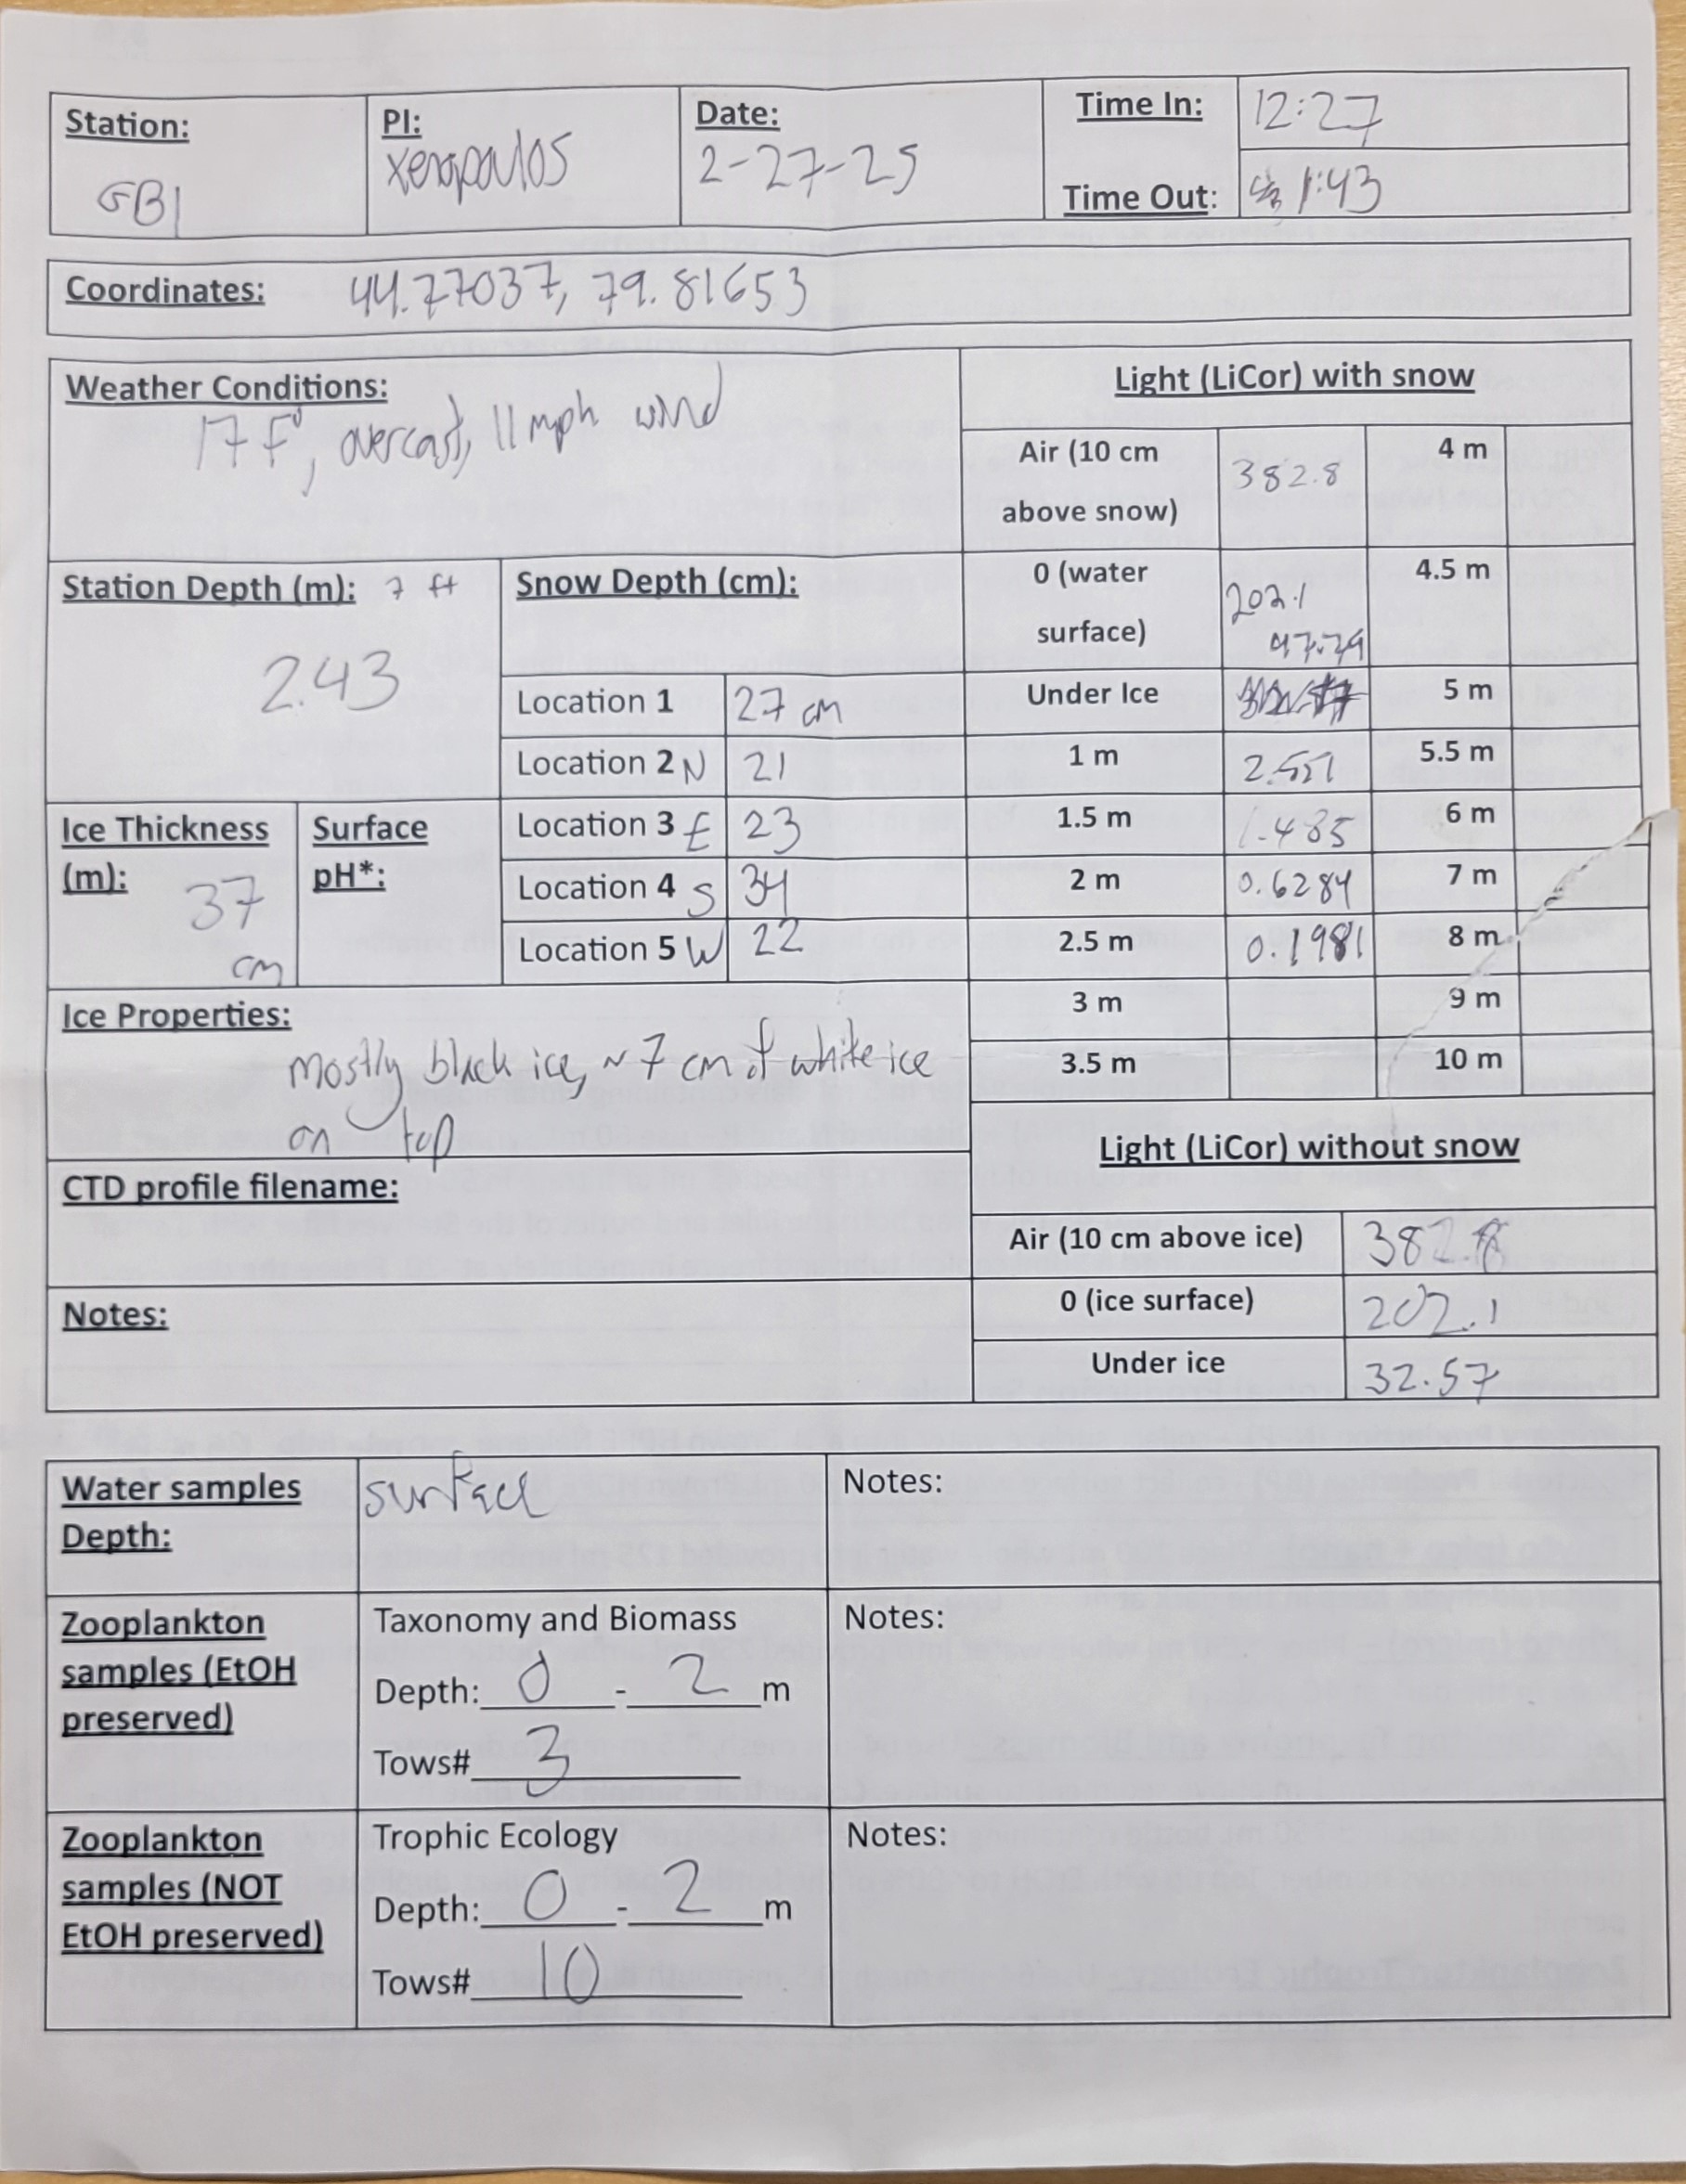 Station:
GB1
PI:
Xenopoulos
Date:
2-27-25
Time In:
12:27
Time Out:
1:43
Coordinates: 44.77037, 79.81653
Weather Conditions:
17 F°, overcast, 11 mph wind
Station Depth (m): 7 ft
2.43
Snow Depth (cm):
Location 1 27 cm
Location 2 N 21
Location 3 E 23
Location 4 S 34
Location 5 W 22
Ice Thickness
(m): 37
cm
Surface
pH*:
Ice Properties:
mostly black ice, ~7 cm of white ice
on top
CTD profile filename:
Notes:
Light (LiCor) with snow
Air (10 cm
above snow) 382.8
0 (water
surface) 202.1
47.79
Under Ice
1 m 2.551
1.5 m 1.485
2 m 0.6284
2.5 m 0.1981
3 m
3.5 m
4 m
4.5 m
5 m
5.5 m
6 m
7 m
8 m
9 m
10 m
Light (LiCor) without snow
Air (10 cm above ice) 382.8
0 (ice surface) 202.1
Under ice 32.57
Water samples
Depth:
surface
Notes:
Zooplankton
samples (EtOH
preserved)
Taxonomy and Biomass
Depth: 0 - 2 m
Tows# 3
Notes:
Zooplankton
samples (NOT
EtOH preserved)
Trophic Ecology
Depth: 0 - 2 m
Tows# 10
Notes: